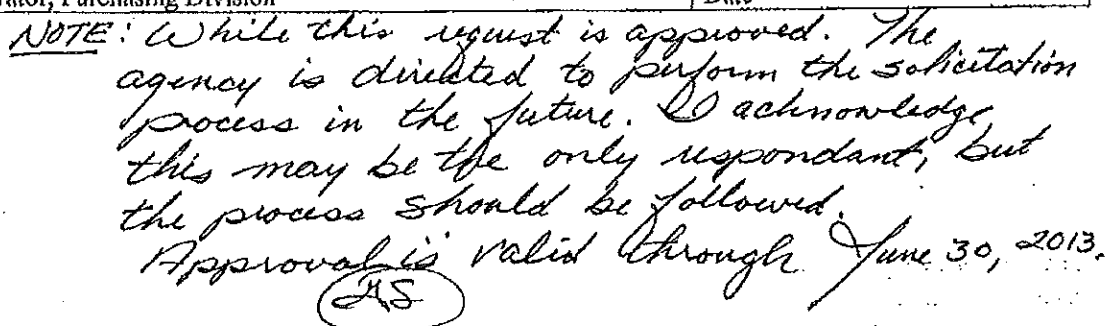 rator, Purchasing Division Date
NOTE: While this request is approved. The
agency is directed to perform the solicitation
process in the future. I acknowledge
this may be the only respondant, but
the process should be followed.
Approval is valid through June 30, 2013.